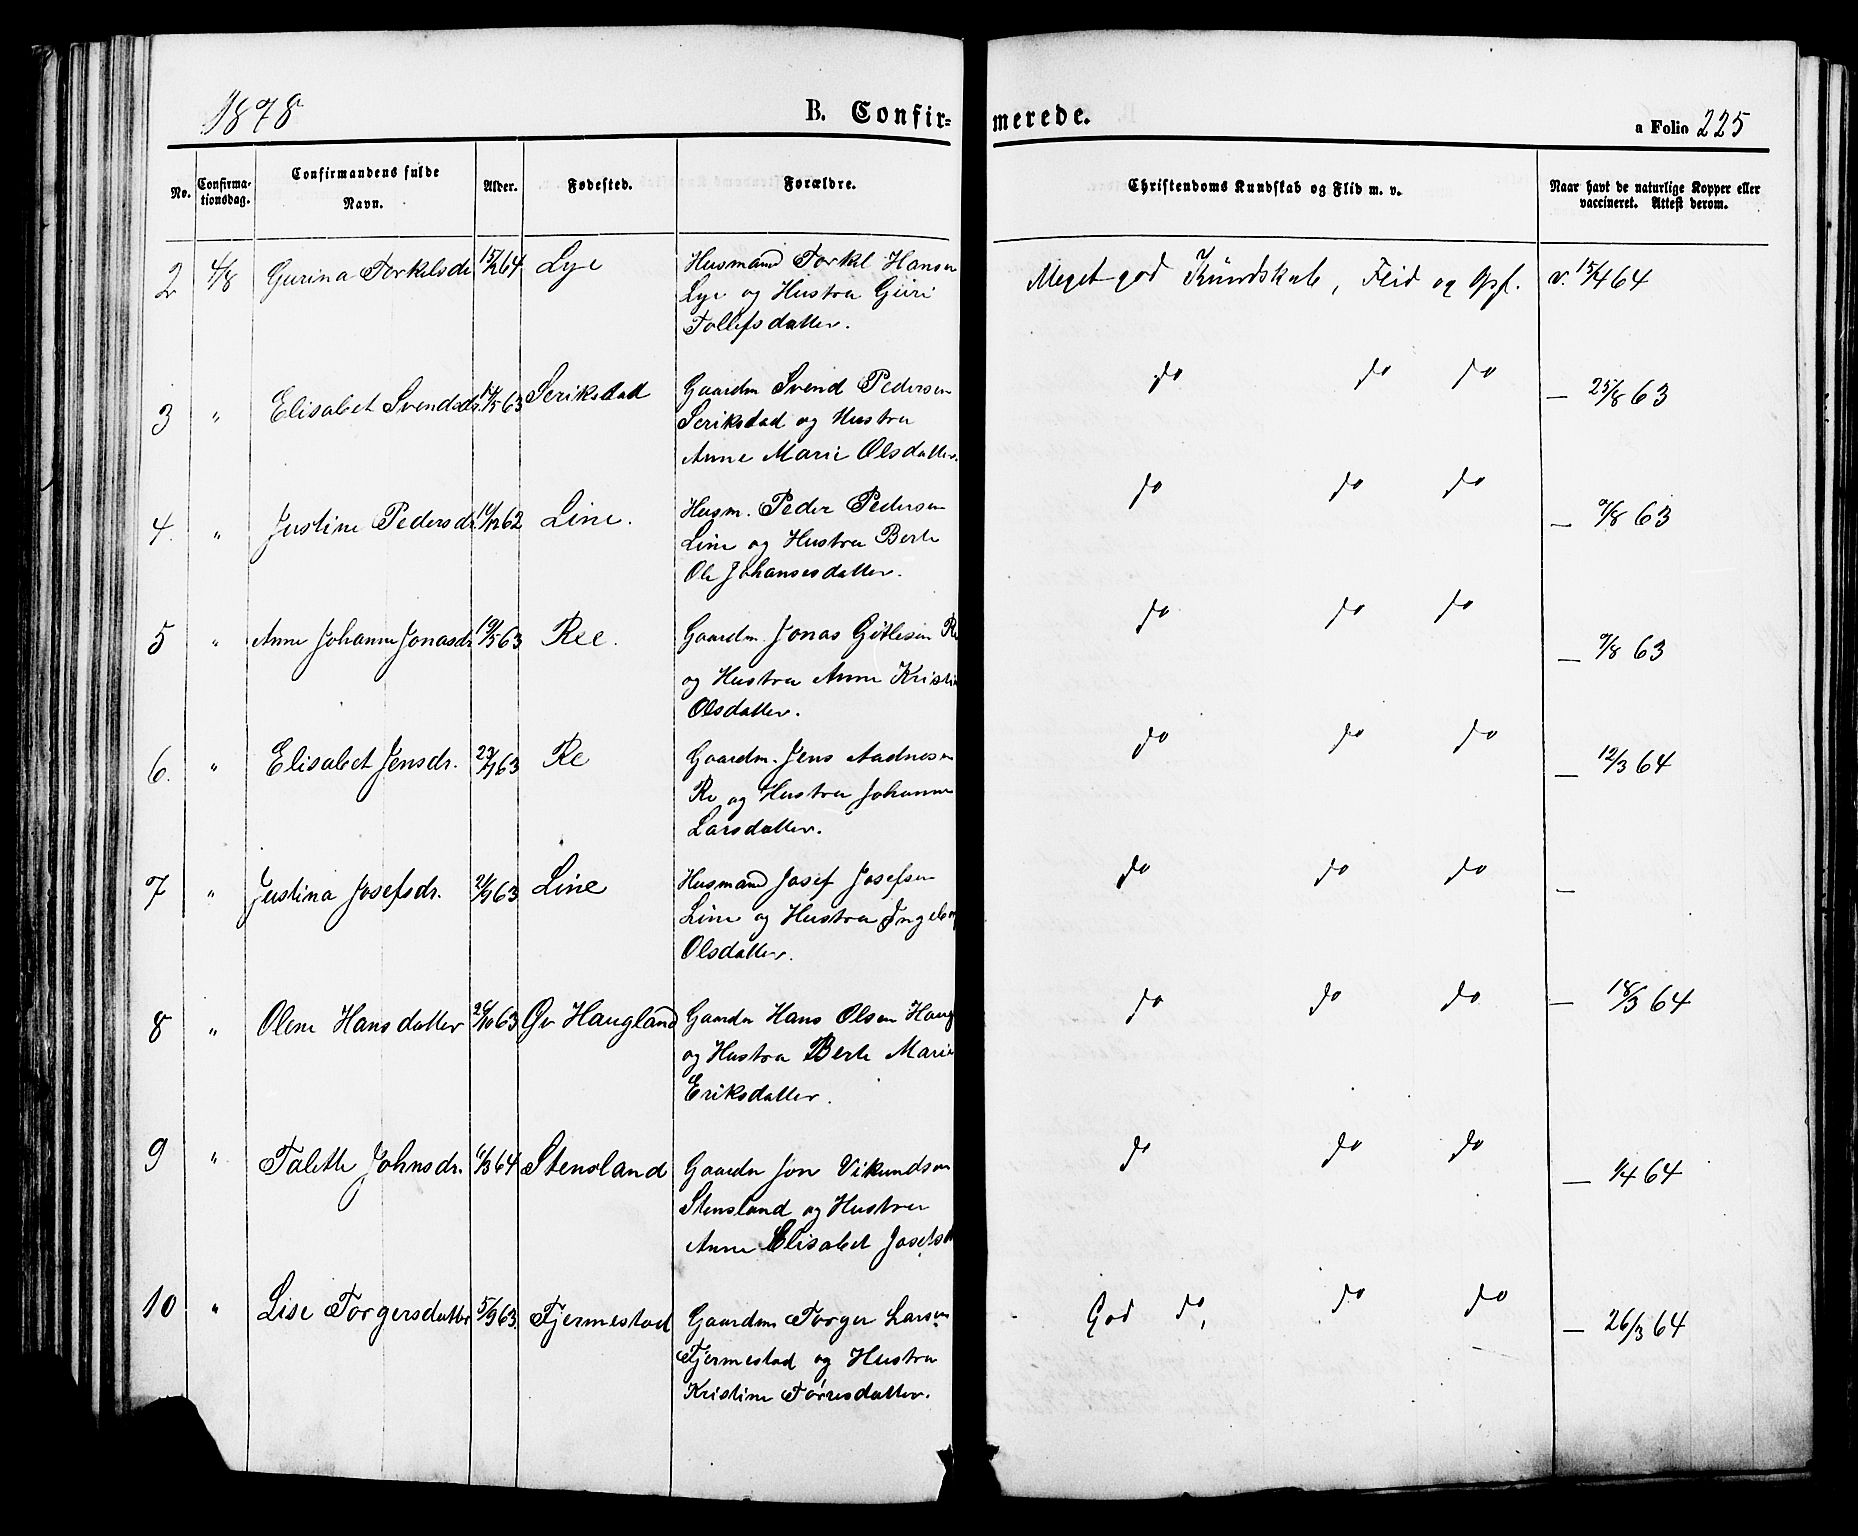 1878 B. Confir-merede. a Folio 225
No. Confirma-tionsdag. Confirmandens fulde Navn. Alder. Fødested. Forældre. Christendoms Kundskab og Flid m. v. Naar havt de naturlige Kopper eller vaccineret. Attest derom.
2 4/8 Gurina Torkelsdr 64 Lye Husmand Torkl Hansen Meget god Kundskab, Flid og Opf. v. 15/4 64
Lye og Hustru Guri
Tollefsdatter.
3 " Elisabet Svendsdr. 63 Serikstad Gaardm Svend Pedersen do do do — 25/8 63
Serikstad og Hustru
Anne Marie Olsdatter.
4. " Justine Pedersdr 62 Line. Husm. Peder Pedersen do do do — 9/8 63
Line og Hustru Berte
Ole Johannesdatter.
5 " Anne Johanne Jonasdr 63 Ree. Gaardm. Jonas Gitlesen Re do do do — 9/8 63
og Hustru Anne Kristine
Olsdatter.
6. " Elisabet Jensdr. 63 Re Gaardm. Jens Aadnesen do do do — 12/3 64
Re og Hustru Johanne
Larsdatter.
7 " Justina Josefsdr. 63 Line Husmand Josef Josefsen do do do —
Line og Hustru Ingeborg
Olsdatter.
8 " Olene Hansdatter 63 Øv Haugland Gaardm Hans Olsen Haug do do do — 18/3 64
og Hustru Berte Marie
Eriksdatter.
9 " Talette Johnsdr. 64 Stensland Gaardm Jon Vikundsen do do do — 1/4 64
Stensland og Hustru
Anne Elisabet Josefsd
10 " Lise Torgersdatter 5/9 63. Fjermestad Gaardm Torger Larsen God do, do do — 26/3 64
Fjermestad og Hustru
Kristine Tørresdatter.